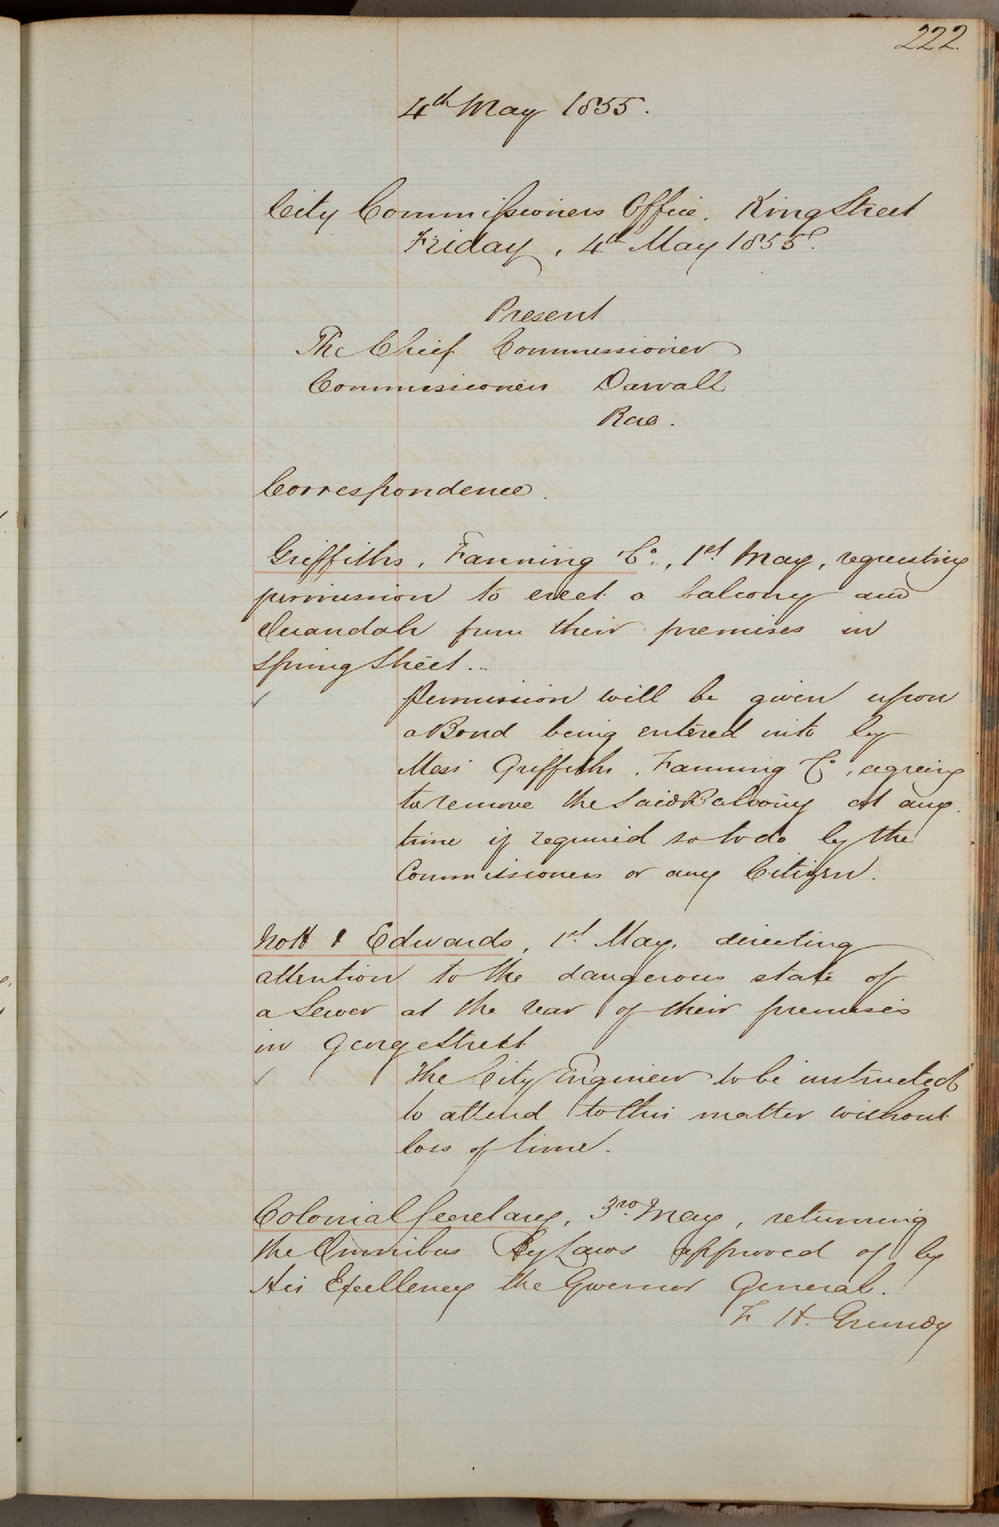 222.
4th May 1855.
City Commissioners Office. King Street
Friday, 4th May 1855.
Present
The Chief Commissioner
Commissioners Darvall
Rae.
Correspondence.
Griffiths, Fanning & Co., 1st May, requesting
permission to erect a balcony and
Verandah from their premises in
Spring Street..
✓ Permission will be given upon
a Bond being entered into by
Messrs Griffiths, Fanning & Co, agreeing
to remove the said Balcony at any
time if required so to do by the
Commissioners or any Citizen.
Nott & Edwards, 1st May, directing
attention to the dangerous state of
a Sewer at the rear of their premises
in George Street
✓ The City Engineer to be instructed
to attend to this matter without
loss of time.
Colonial Secretary, 3rd May, returning
the Omnibus By Laws approved of by
His Excellency the Governor General.
F. H. Grundy